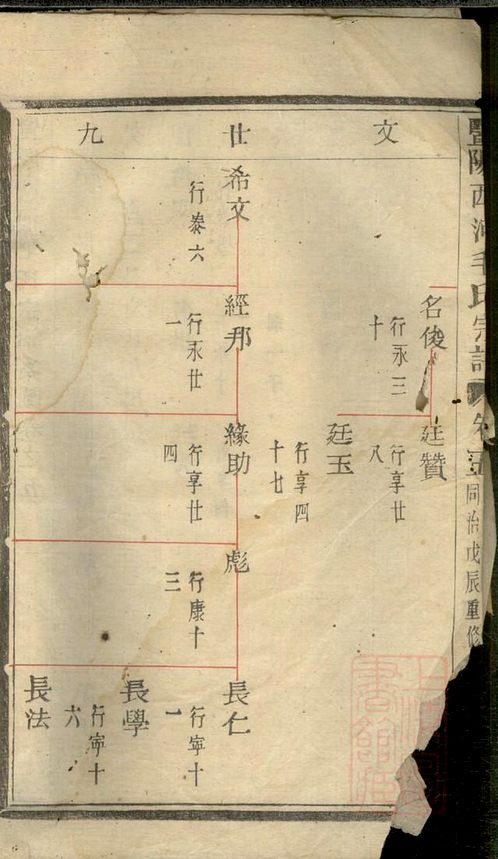 暨陽西河毛氏宗譜
同治戊辰重修
文
名俊
行永三十
廷贊
行享廿八
廷玉
行享四十七
仕
希文
行泰六
經邦
行永廿一
緣助
行享廿四
彪
行康十三
長仁
行寧十一
九
長學
行寧十六
長法